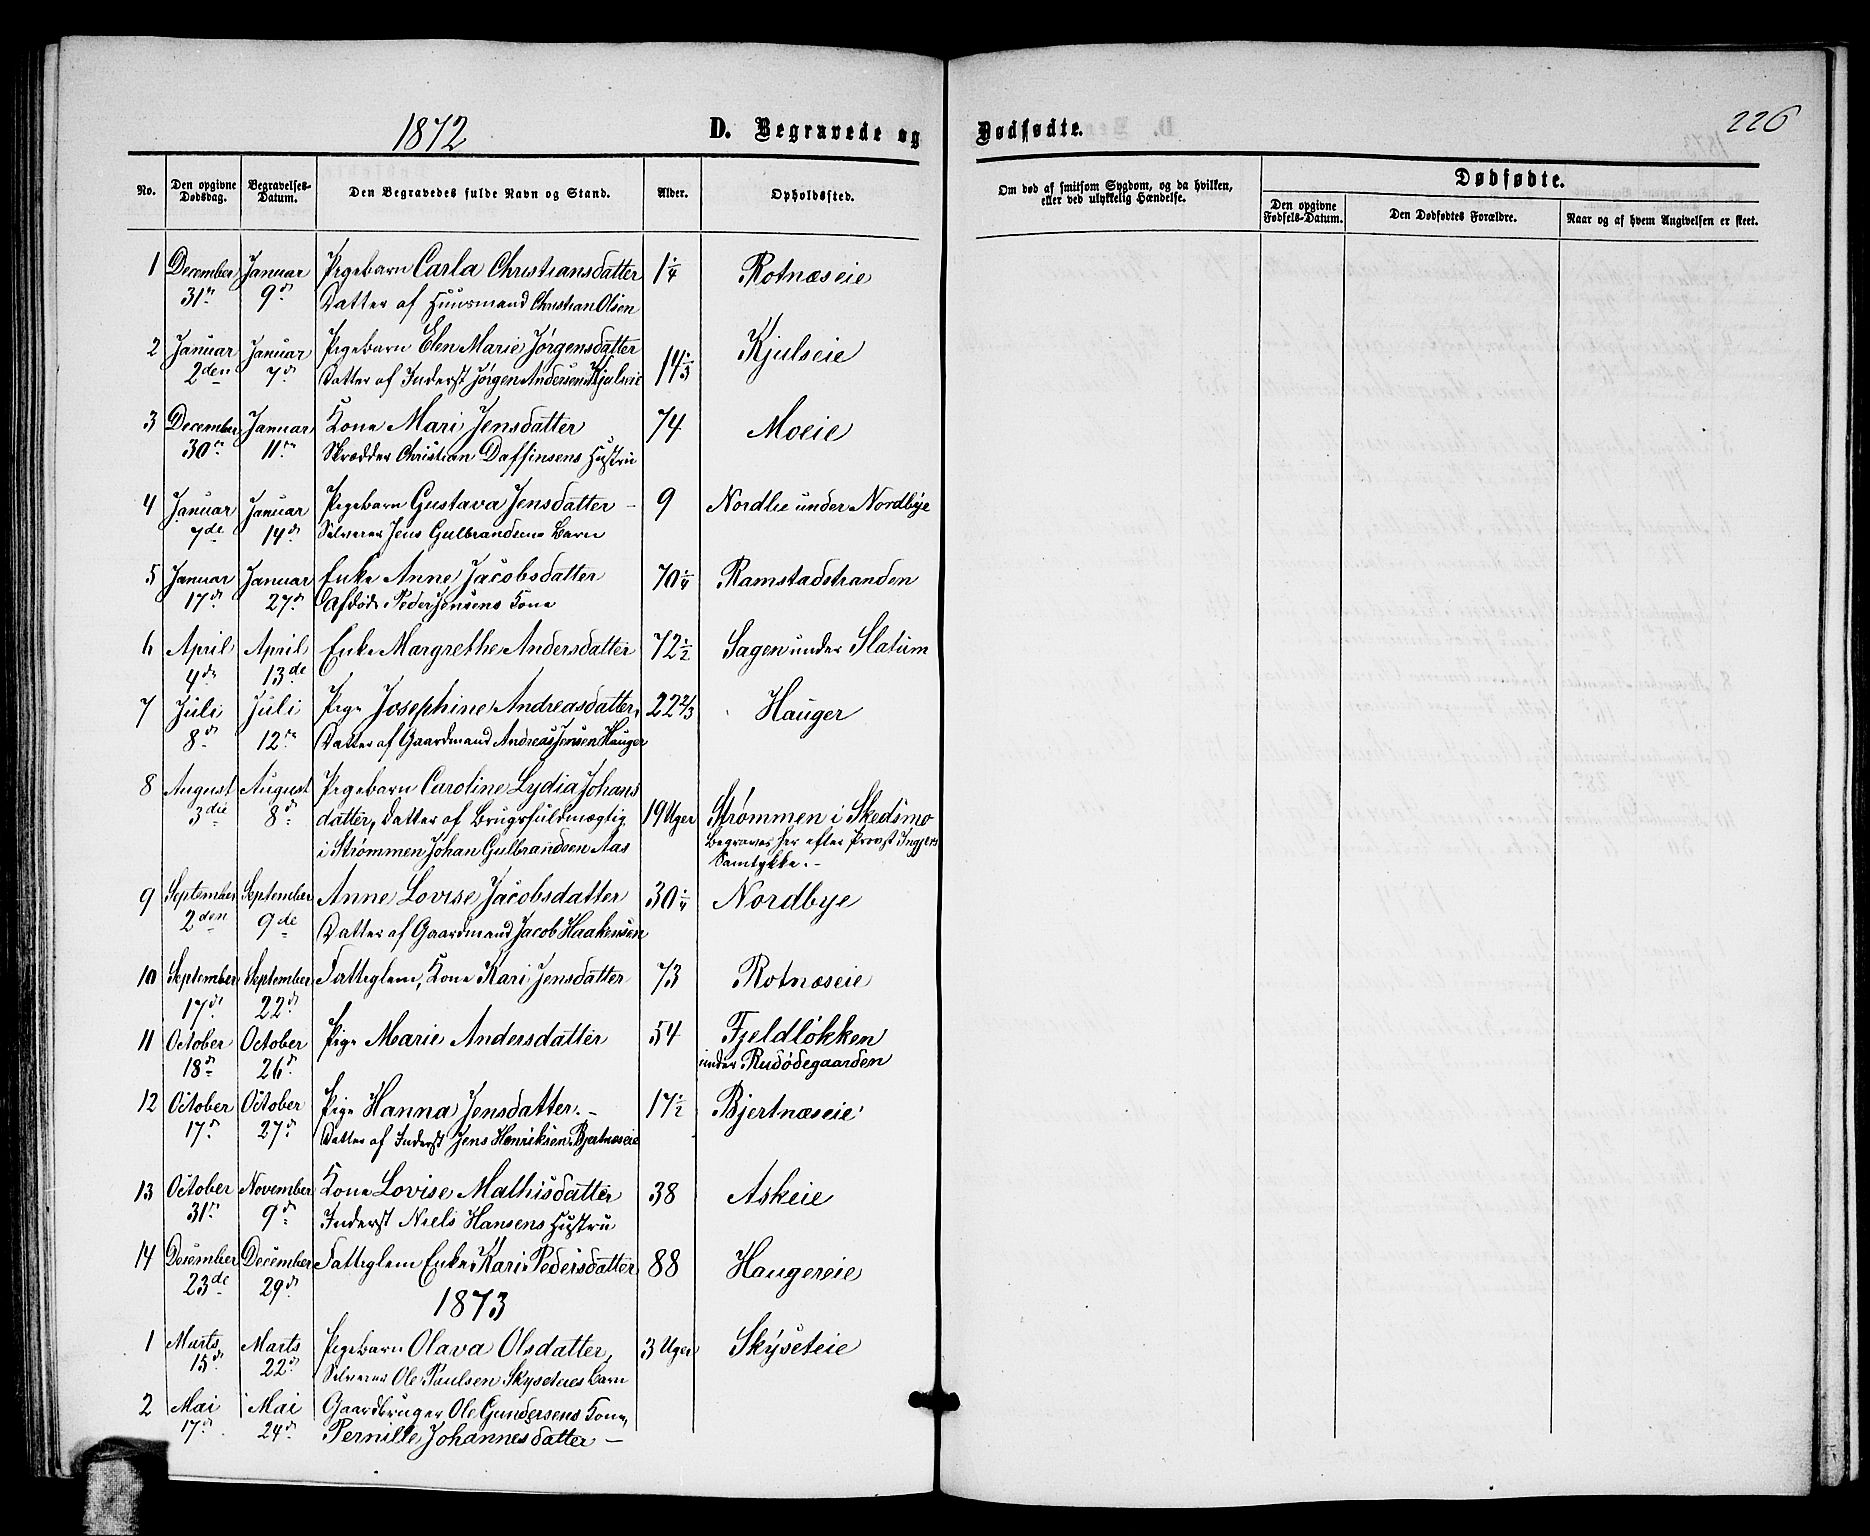 1872
D. Begravede og Dødfødte.
226
No.
Den opgivne Dødsdag.
Begravelses-Datum.
Den Begravedes fulde Navn og Stand.
Alder.
Opholdssted.
Om død af smitsom Sygdom, og da hvilken, eller ved ulykkelig Hændelse.
Dødfødte.
Den opgivne Fødsels-Datum.
Den Dødfødtes Forældre.
Naar og af hvem Angivelsen er skeet.
1 December Januar Pigebarn Carla Christiansdatter 1 1/4 Rotnæseie
31te 9de Datter af Huusmand Christian Olsen
2 Januar Januar Pigebarn Elen Marie Jørgensdatter 14 1/3 Kjulseie
2den 7de Datter af Inderst Jørgen Andersen Kjulseie
3 December Januar Kone Mari Jensdatter 74 Moeie
30te 11te Skrædder Christian Daffinsens Hustru
4 Januar Januar Pigebarn Gustava Jensdatter – 9 Nordlie under Nordbye
7de 14de Selveier Jens Gulbrandsens Barn
5 Januar Januar Enke Anne Jacobsdatter 70 1/4 Ramstadstranden
17de 27de Afdøde Peder Jensens Kone
6 April April Enke Margrethe Andersdatter 72 1/2 Sagen under Slatum
4de 13de
7 Juli Juli Pige Josephine Andreasdatter, 22 2/3 Hauger
8de 12te Datter af Gaardmand Andreas Jensen Hauger
8 August August Pigebarn Caroline Lydia Johans
3die 8de datter, Datter af Brugsfuldmægtig 19 Uger Strømmen i Skedsmo
i Strømmen Johan Gulbrandsen Aas Begraves her efter Provst Ingjers
Samtykke.-
9 September September Anne Lovise Jacobsdatter 30 1/4 Nordbye
2den 9de Datter af Gaardmand Jacob Haakensen
10 September September Fattiglem, Kone Kari Jensdatter 73 Rotnæseie
17de 22de
11 October October Pige Marie Andersdatter 54 Fjeldløkken
18de 26de under Rudødegaarden
12 October October Pige Hanna Jensdatter. – 17 1/2 Bjertnæseie
17de 27de Datter af Inderst Jens Henriksen Bjertnæseie
13 October November Kone Lovise Mathisdatter 38 Askeie
31te 9de Inderst Niels Hansens Hustru
14 December December Fattiglem Enke Kari Pedersdatter 88 Haugereie
23de 29de
1873
1 Marts Marts Pigebarn Olava Olsdatter, 3 Uger Skyseteie
15de 22de Selveier Ole Paulsen Skysetnes Barn
2 Mai Mai Gaardbruger Ole Gundersens Kone,
17de 24de Pernille Johannesdatter –